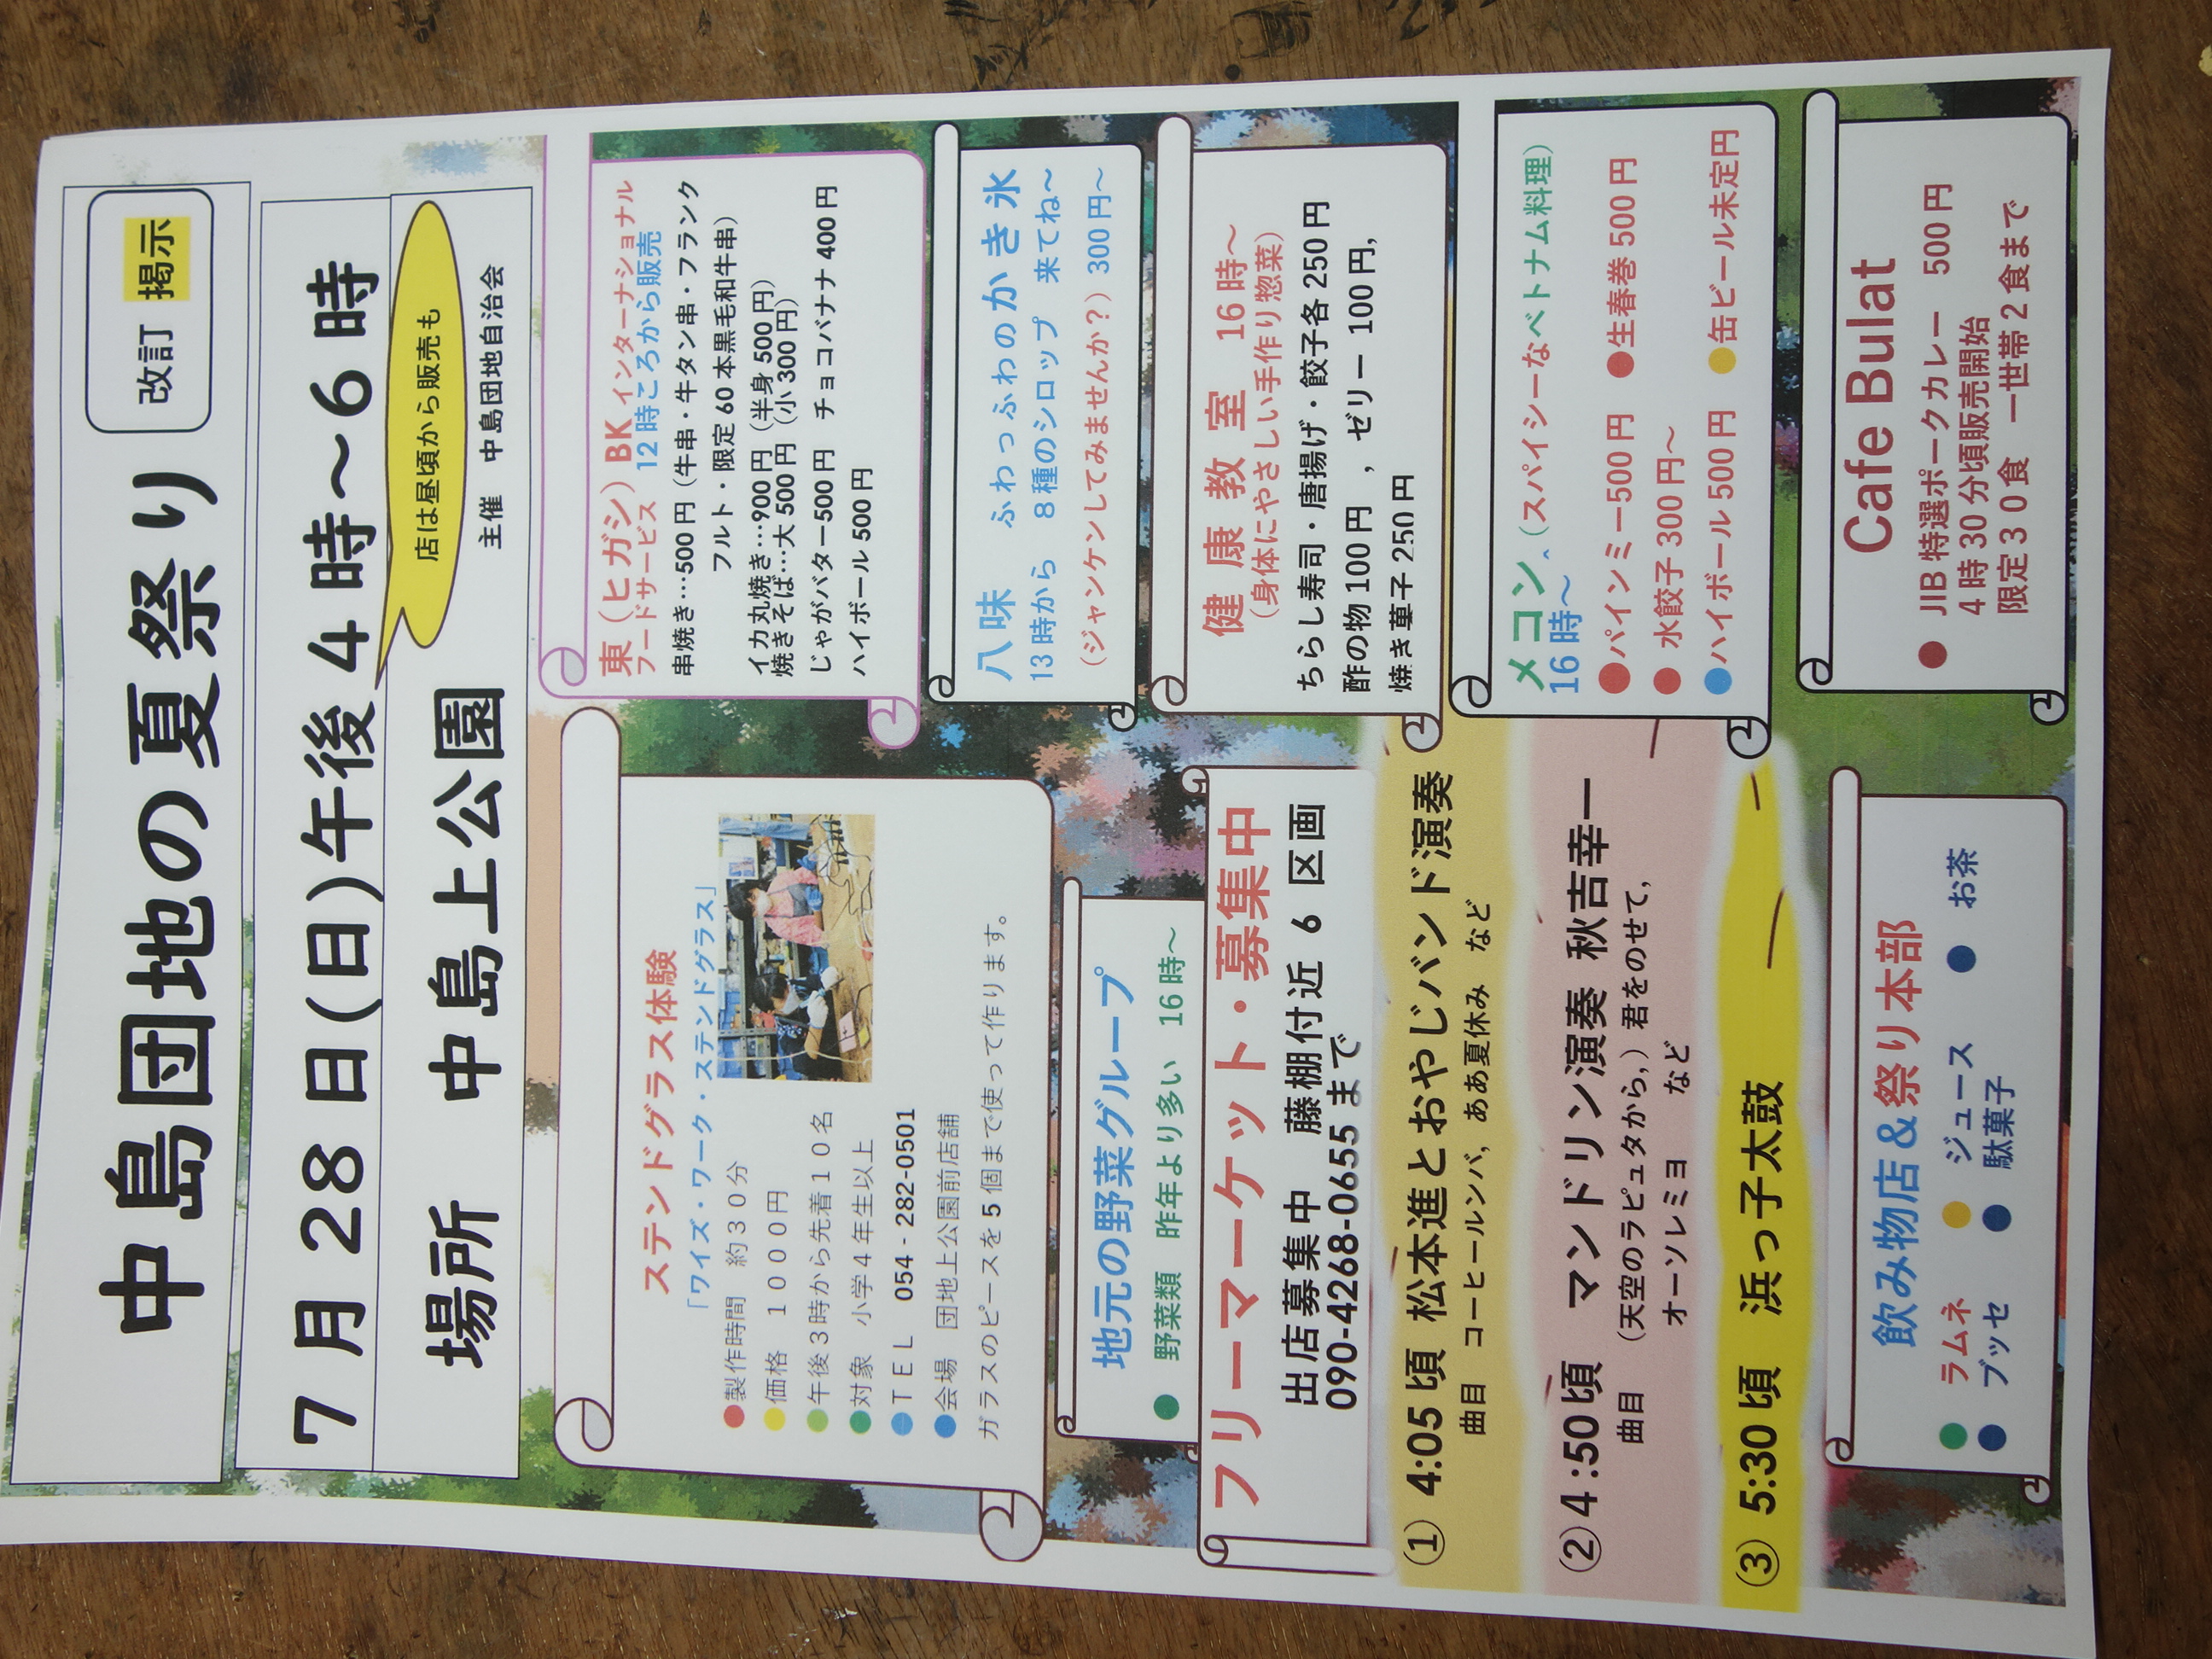 中島団地の夏祭り
改訂 掲示
7月28日(日)午後4時～6時
場所 中島上公園
店は昼頃から販売も
主催 中島団地自治会
ステンドグラス体験
「ワイズ・ワーク・ステンドグラス」
●製作時間 約30分
●価格 1000円
●午後3時から先着10名
●対象 小学4年生以上
●TEL 054-282-0501
●会場 団地上公園前店舗
ガラスのピースを5個まで使って作ります。
地元の野菜グループ
● 野菜類 昨年より多い 16時～
フリーマーケット・募集中
出店募集中 藤棚付近 6 区画
090-4268-0655まで
① 4:05頃 松本進とおやじバンド演奏
曲目 コーヒールンバ, ああ夏休み など
②4:50頃 マンドリン演奏 秋吉幸一
曲目 (天空のラピュタから,)君をのせて,
オーソレミヨ など
③ 5:30頃 浜っ子太鼓
飲み物店&祭り本部
● ラムネ ● ジュース ● お茶
● ブッセ ● 駄菓子
東(ヒガシ)BKインターナショナル
フードサービス 12時ころから販売
串焼き…500円(牛串・牛タン串・フランク
フルト・限定60本黒毛和牛串)
イカ丸焼き…900円(半身500円)
焼きそば…大500円(小300円)
じゃがバター500円 チョコバナナ400円
ハイボール500円
八味 ふわっふわのかき氷
13時から 8種のシロップ 来てね～
(ジャンケンしてみませんか?)300円～
健康教室 16時～
(身体にやさしい手作り惣菜)
ちらし寿司・唐揚げ・餃子各250円
酢の物100円 , ゼリー 100円,
焼き菓子250円
メコン (スパイシーなベトナム料理)
16時～
●パインミー500円 ●生春巻500円
● 水餃子300円～
●ハイボール500円 ●缶ビール未定円
Cafe Bulat
● JIB特選ポークカレー 500円
4時30分頃販売開始
限定30食 一世帯2食まで